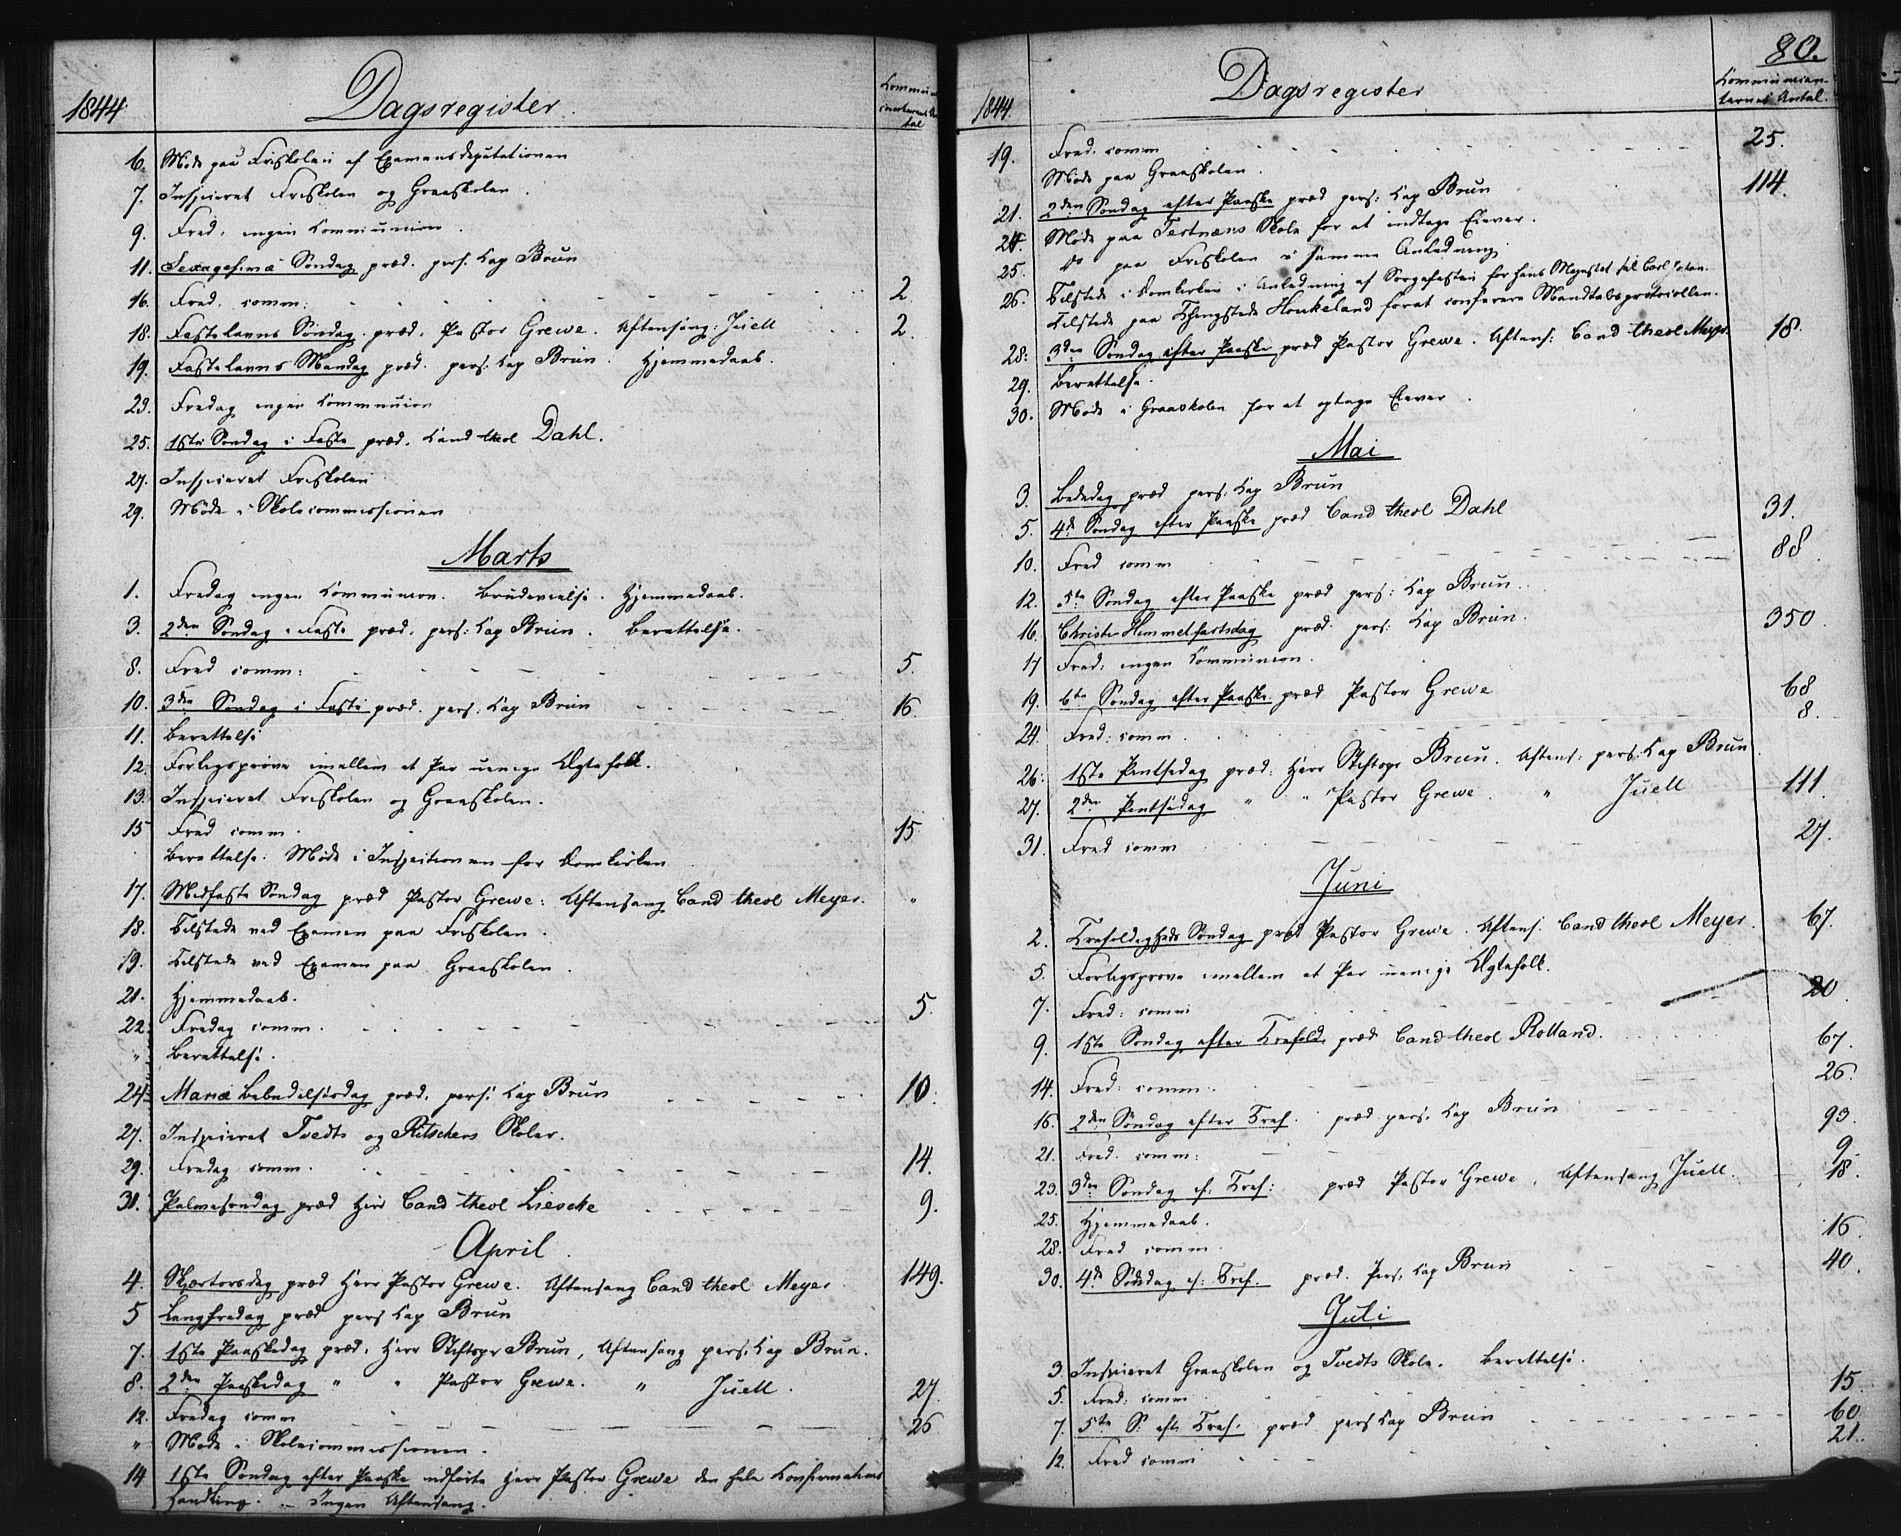 1844. Dagsregister. Kommuni-
canternes An-
tal
6. Møde paa Friskolen af Examensdeputationen
7. Inspiceret Friskolen og Graaskolen.
9. Fred: ingen Kommunion.
11. Sexagesimæ Søndag præd. pers. Cap Brun
16. Fred. comm: 2.
18. Fastelavns Søndag præd. Pastor Grewe. Aftensang: Juell 2.
19. Fastelavns Mandag præd. pers: Cap Brun. Hjemmedaab.
23. Fredag ingen Kommunion
25. 1ste Søndag i Faste præd. Cand theol Dahl.
27. Inspiceret Friskolen
29. Møde i Skolecommissionen
Marts
1. Fredag ingen Kommunion. Brudevielse. Hjemmedaab.
3. 2den Søndag i Faste præd. pers: Cap Brun. Berettelse.
8. Fred comm: 5.
10. 3den Søndag i Faste præd. pers: Cap Brun 16.
11. Berettelse
12. Forligsprøve imellem et Par uenige Ægtefolk.
13. Inspiceret Friskolen og Graaskolen.
15 Fred comm. 15.
Berettelse. Møde i Inspectionen for Domkirken
17. Midfaste Søndag præd Pastor Grewe: Aftensang Cand theol Meyer. "
18. Tilstede ved Examen paa Friskolen.
19. Tilstede ved Examen paa Graaskolen.
21. Hjemmedaab.
22. Fredag comm. 5.
" Berettelse.
24. Mariæ Bebudelsesdag præd. pers: Cap Brun 10.
27. Inspiceret Tvedts og Ritschers Skoler.
29. Fredag comm. 14.
31. Palmesøndag præd Herr Cand theol Liesche 9.
April
4. Skjærtorsdag præd Herr Pastor Grewe. Aftensang Cand theol Meyer 149.
5 Langfredag præd pers Cap Brun
7. 1ste Paaskedag præd. Herr Stiftspr Brun, Aftensang pers. Cap Brun.
8. 2den Paaskedag " " Pastor Grewe. " Juell. 27.
12. Fredag comm 26
" Møde i Skolecommissionen.
14 1ste Søndag efter Paaske udførte Herr Pastor Grewe den hele Konfirmations
Handling. – Ingen Aftensang.
80.
1844. Dagsregister Kommunican-
ternes Antal.
19. Fred. comm 25.
Møde paa Graaskolen.
21. 2den Søndag efter Paaske præd pers: Cap Brun 114.
24. Møde paa Skole for at indtage Elever.
25. do paa Friskolen i samme Anledning
26. Tilstede i Domkirken i Anledning af Sørgefesten for Hans Majestæt sal Carl Johan.
Tilstede paa Haukeland forat conferere Mandtalsprotocollen.
28. 3die Søndag efter Paaske præd Pastor Grewe. Aftens: Cand theol Meyer 18.
29. Berettelse.
30. Møde i Graaskolen for at optage Elever.
Mai
3. Bededag præd pers: Cap Brun
5. 4de Søndag efter Paaske præd Cand theol Dahl 31.
10. Fred comm 88.
12. 5te Søndag efter Paaske præd pers: Cap Brun.
16. Christi Himmelfartsdag præd. pers: Cap Brun. 350.
17 Fred: ingen Kommunion.
19. 6te Søndag efter Paaske præd Pastor Grewe 68
24. Fred: comm. 8.
26. 1ste Pintsedag præd: Herr Stiftspr Brun. Aftens: pers: Cap Brun.
27. 2den Pintsedag " " Pastor Grewe. " Juell 111.
31. Fred comm 27.
Juni
2. Trefoldigheds Søndag præd Pastor Grewe. Aftens. Cand theol Meyer. 67.
5. Forligsprøve imellem et Par uenige Ægtefolk.
7. Fred: comm: 20.
9. 1ste Søndag efter Trefold. præd Cand theol Rolland. 67.
14. Fred: comm. 26.
16. 2den Søndag efter Tref. præd pers. Cap Brun 93.
21. Fred. comm: 9.
23. 3die Søndag ef. Tref: præd Pastor Grewe, Aftensang Juell. 18.
25. Hjemmedaab.
28. Fred comm. 16.
30. 4de Søndag ef: Tref. præd. Pers. Cap Brun 40.
Juli
3. Inspiceret Graaskolen og Tvedts Skole. Berettelse.
5. Fred: comm 15.
7. 5te S. eft Tref. præd pers Cap Brun 60
12. Fred comm 21.